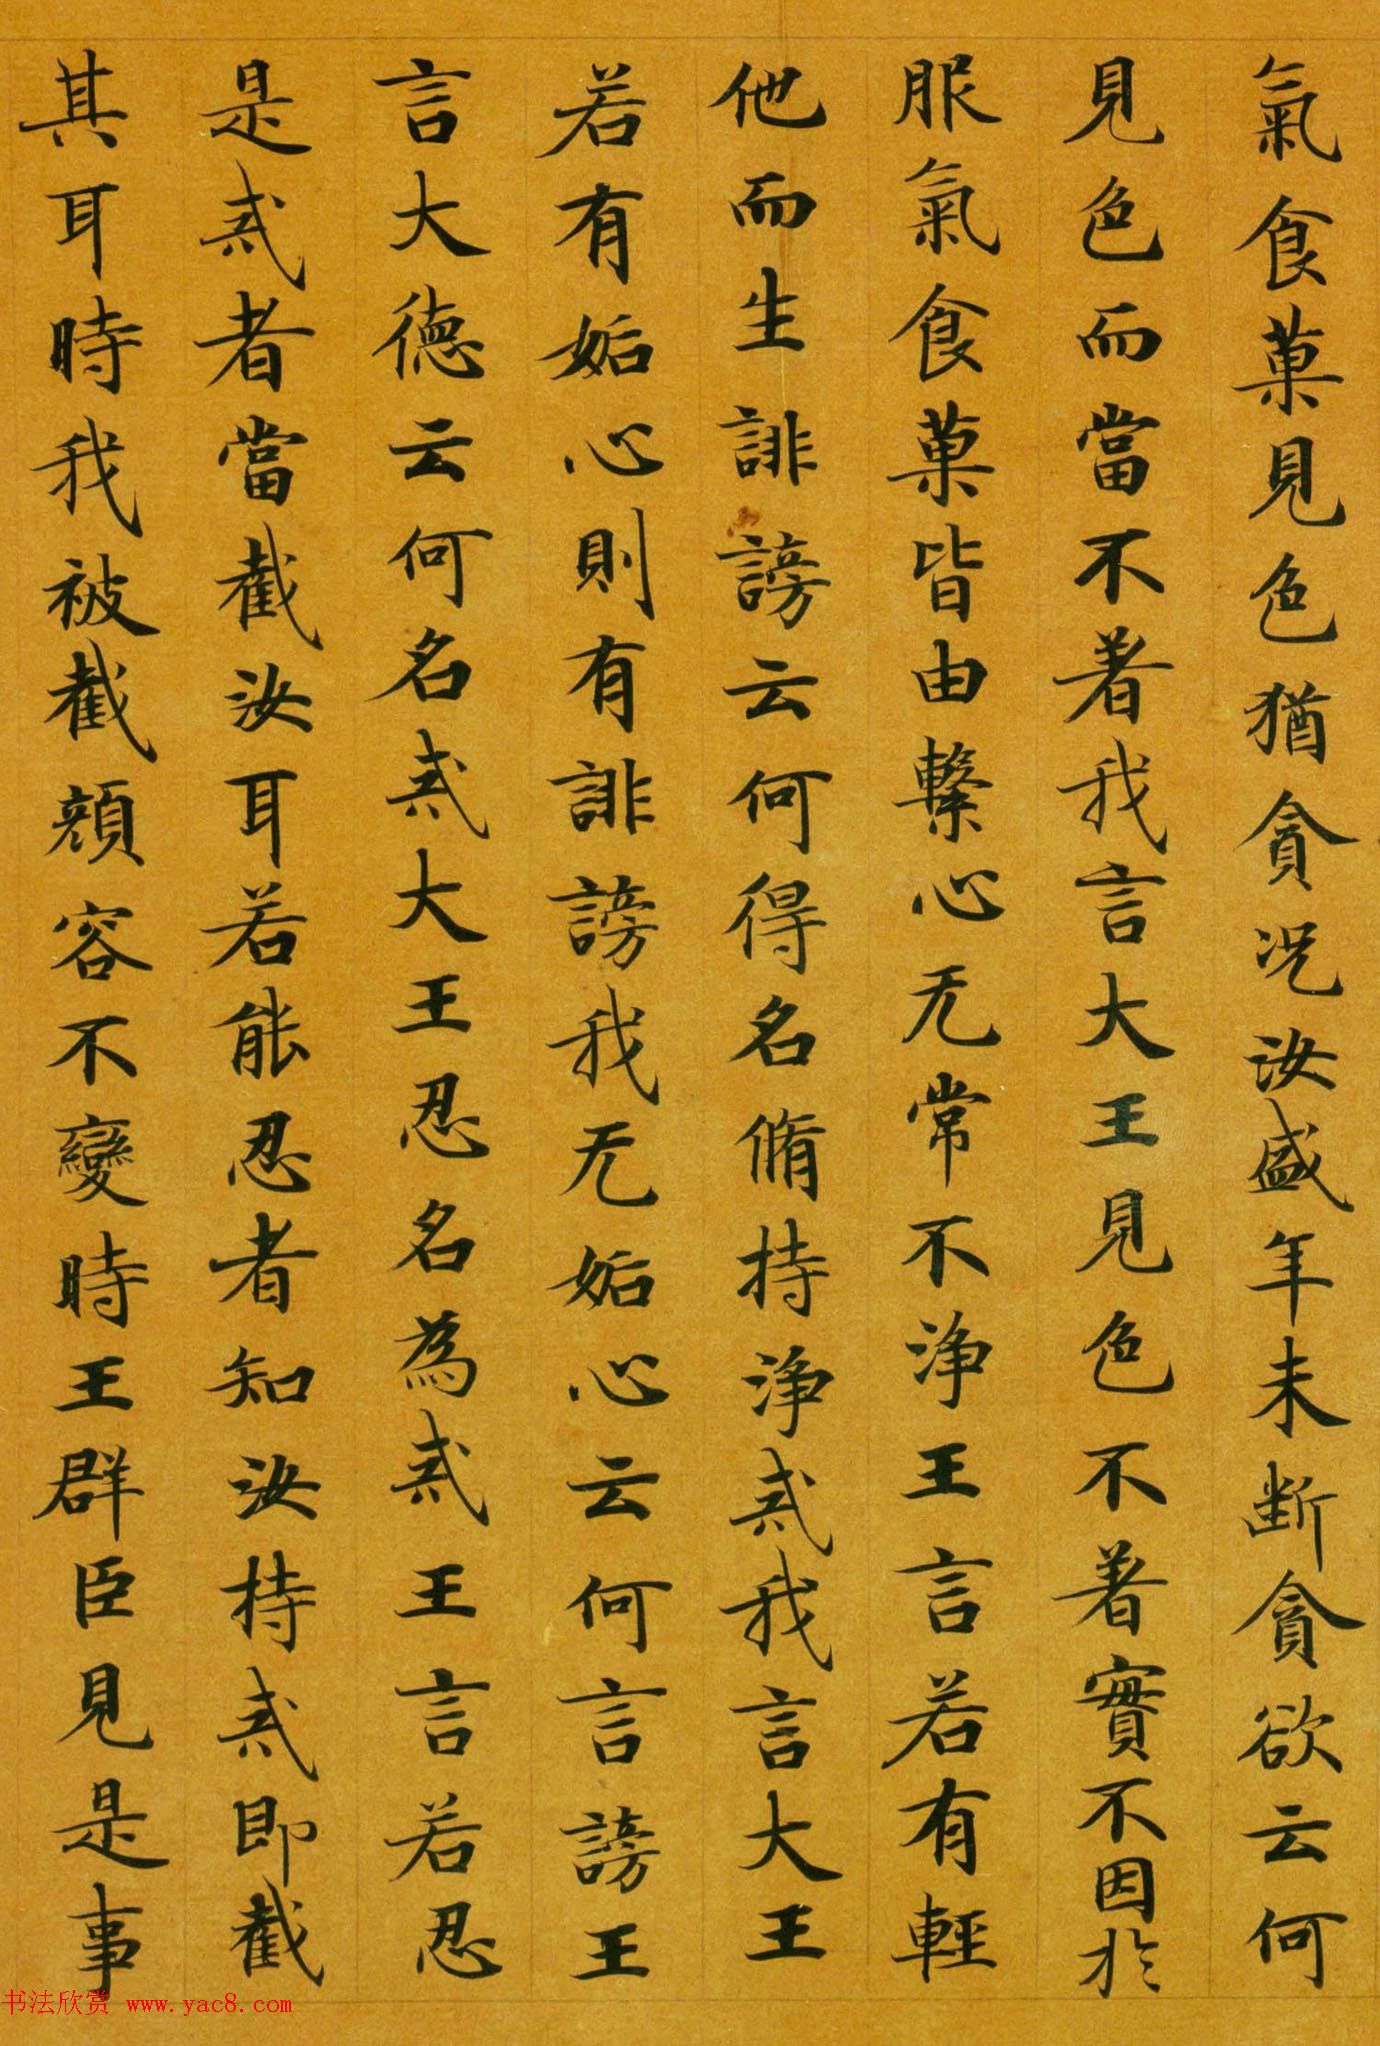 氣食菓見色猶貪况汝盛年未断貪欲云何
見色而當不著我言大王見色不著實不因於
服氣食菓皆由繫心无常不浄王言若有輕
他而生誹謗云何得名脩持浄戒我言大王
若有妬心則有誹謗我无妬心云何言謗王
言大德云何名戒大王忍名為戒王言若忍
是戒者當截汝耳若能忍者知汝持戒即截
其耳時我被截顔容不變時王群臣見是事
书法欣赏 www.yac8.com